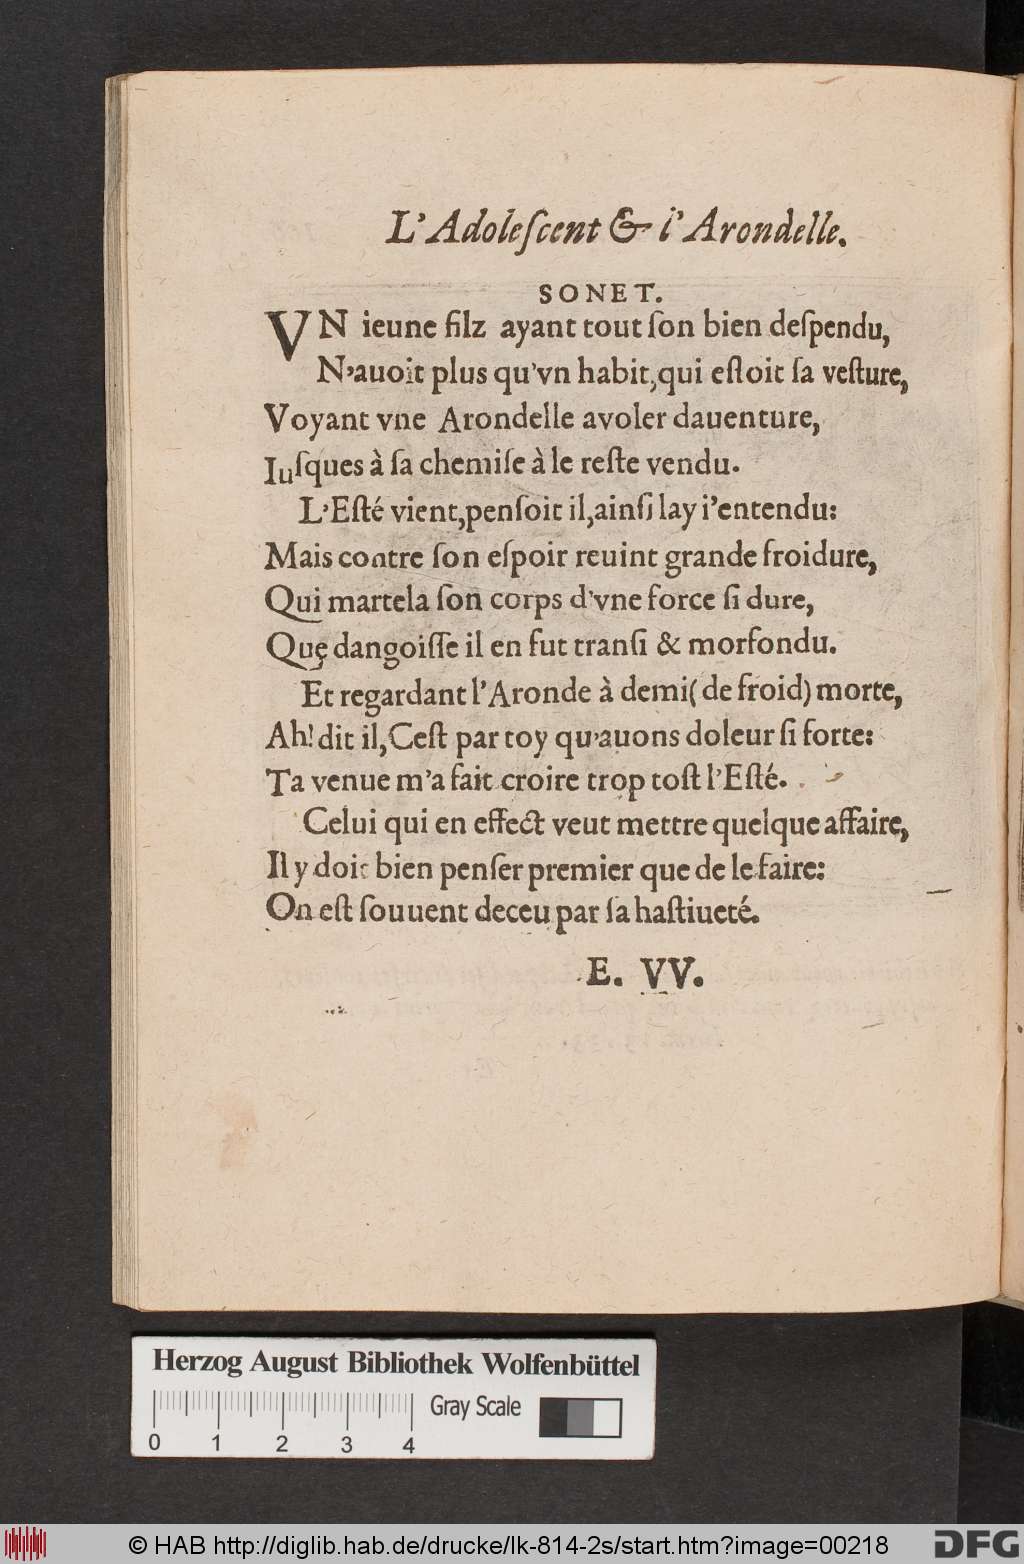 L'Adoleſcent & l'Arondelle.
SONET.
VN ieune filz ayant tout ſon bien deſpendu,
N'auoit plus qu'vn habit, qui eſtoit ſa veſture,
Voyant vne Arondelle avoler dauenture,
Iuſques à ſa chemiſe à le reſte vendu.
L'Eſté vient, penſoit il, ainſi lay i'entendu:
Mais contre ſon eſpoir reuint grande froidure,
Qui martela ſon corps d'vne force ſi dure,
Que dangoiſſe il en fut tranſi & morfondu.
Et regardant l'Aronde à demi (de froid) morte,
Ah! dit il, Ceſt par toy qu'auons doleur ſi forte:
Ta venue m'a fait croire trop toſt l'Eſté.
Celui qui en effect veut mettre quelque affaire,
Il y doit bien penſer premier que de le faire:
On eſt ſouuent deceu par ſa haſtiueté.
E. VV.
Herzog August Bibliothek Wolfenbüttel
Gray Scale
0 1 2 3 4
© HAB http://diglib.hab.de/drucke/lk-814-2s/start.htm?image=00218
DFG